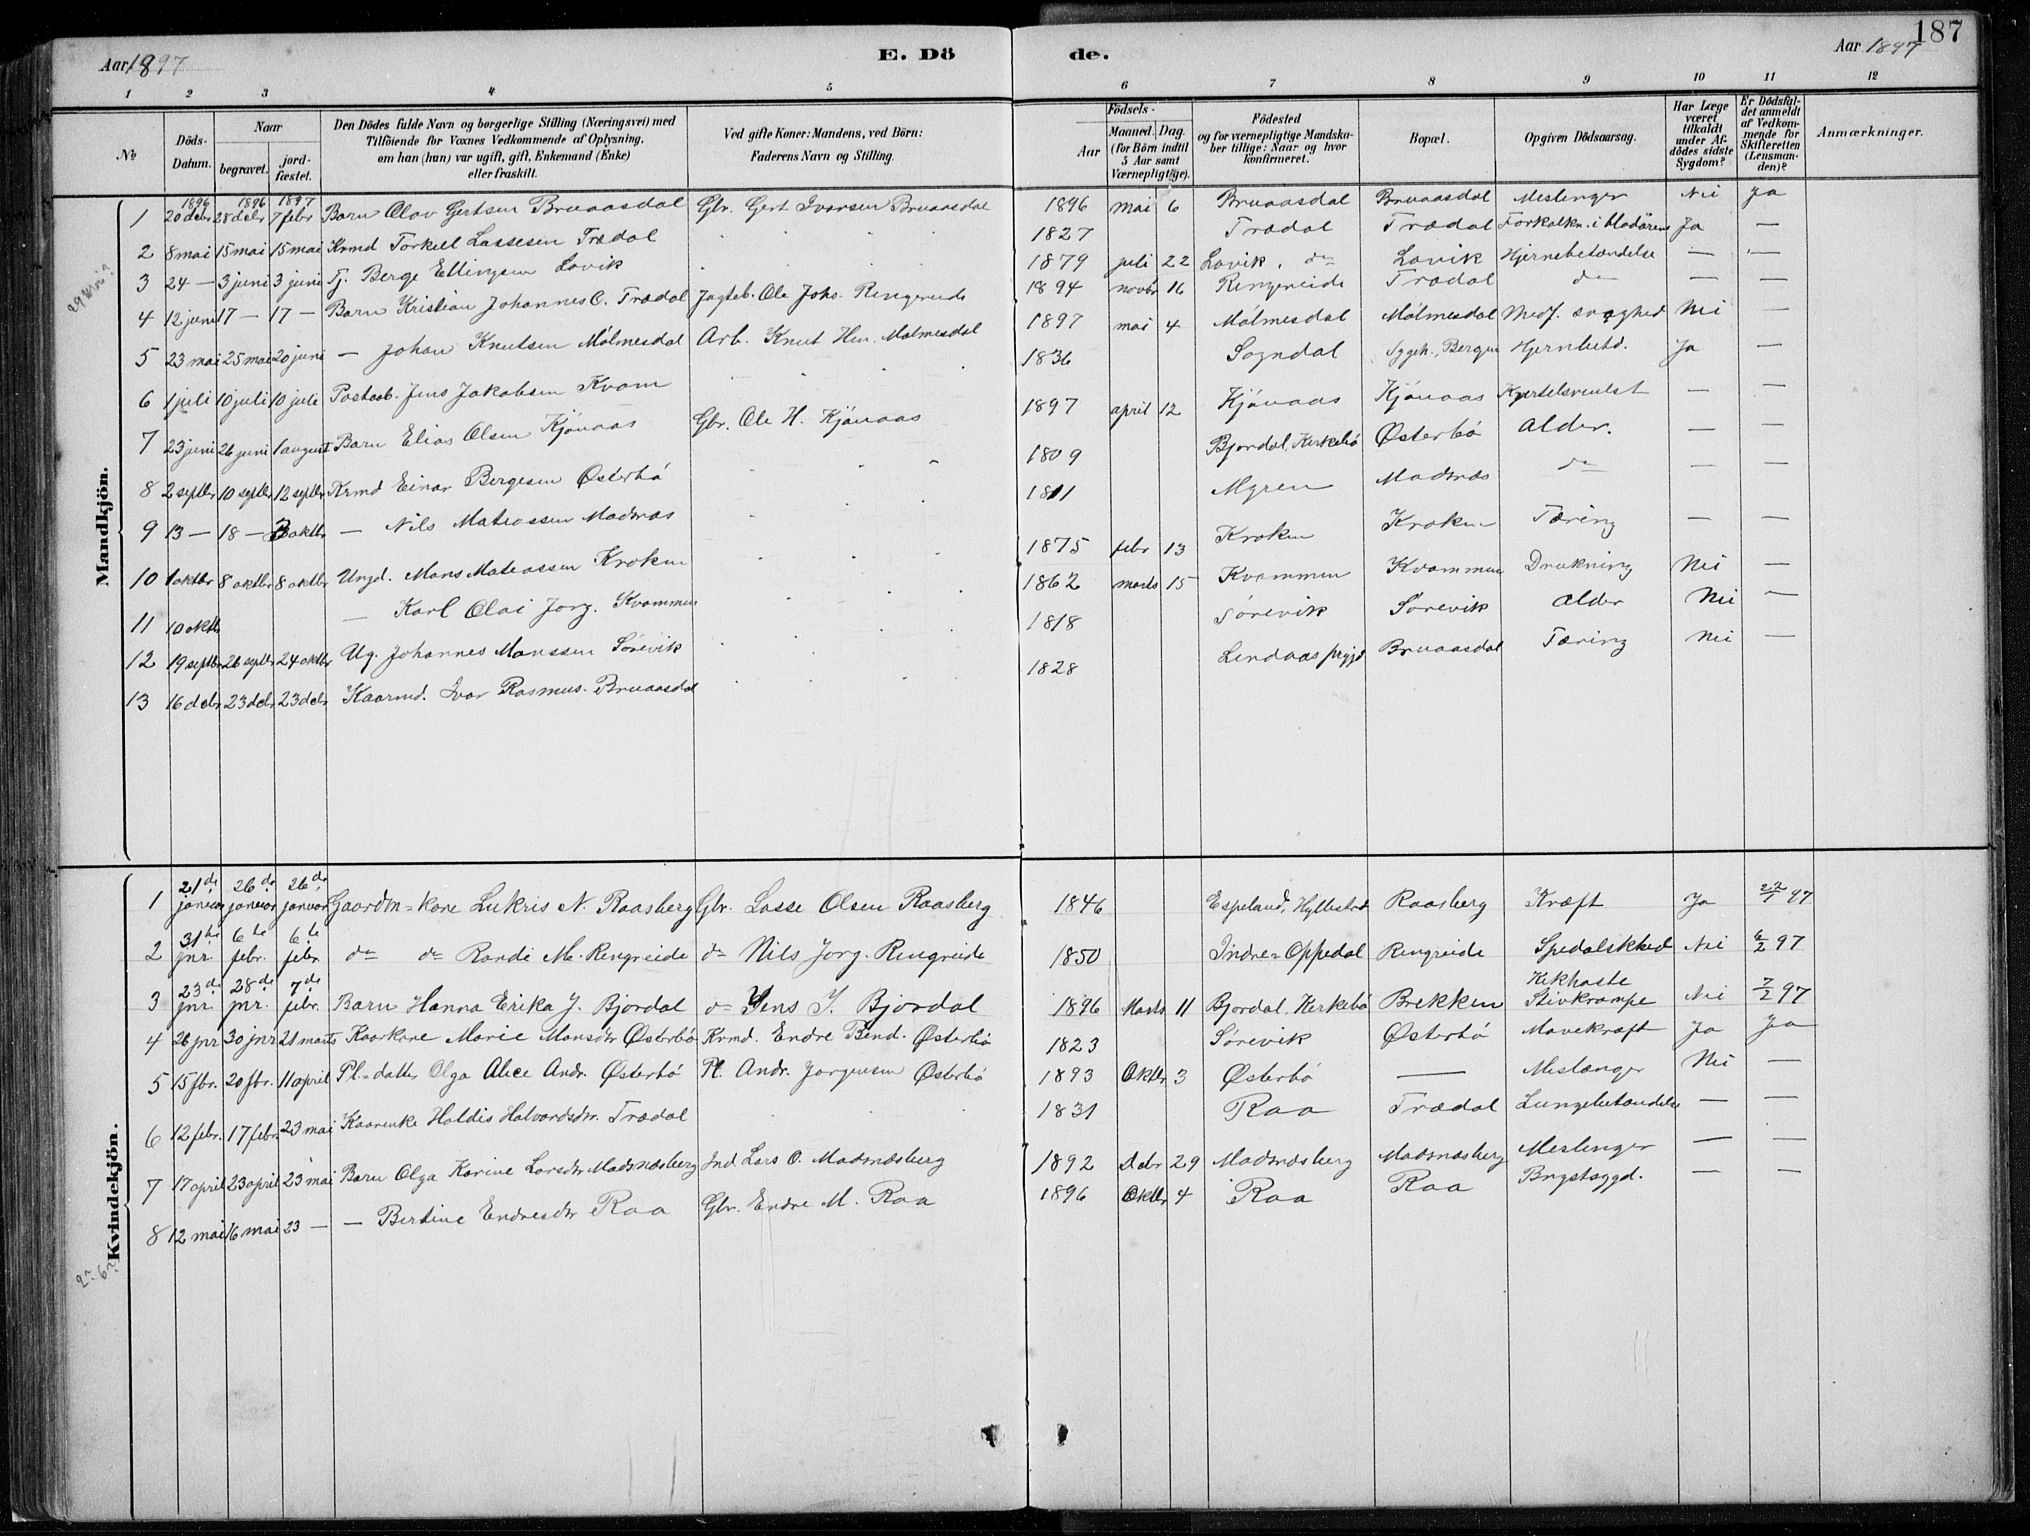 187
Aar 1897 E. Dö de. Aar 1897
1 2 3 4 5 6 7 8 9 10 11 12
№ Döds-Datum. Naar begravet. jord-fæstet. Den Dödes fulde Navn og borgerlige Stilling (Næringsvei) med Tilföiende for Voxnes Vedkommende af Oplysning, om han (hun) var ugift, gift, Enkemand (Enke) eller fraskilt. Ved gifte Koner: Mandens, ved Börn: Faderens Navn og Stilling. Födsels- Aar Maaned. Dag. (for Börn indtil 5 Aar samt Værnepligtige). Födested og for værnepligtige Mandskaber tillige: Naar og hvor konfirmeret. Bopæl. Opgiven Dödsaarsag. Har Læge været tilkaldt under Afdödes sidste Sygdom? Er Dödsfaldet anmeldt af Vedkommende for Skifteretten (Lensmanden)? Anmærkninger.
Mandkjön.
1 1896 20 debr 1896 28 debr 1897 7 febr Barn Olav Gertsen Bruaasdal Gbr. Gert Ivarsen Bruaasdal 1896 mai 6 Bruaasdal Bruaasdal Meslinger Nei Ja
2 8 mai 15 mai 15 mai Krmd Torkell Lassesen Trædal 1827 Trædal Trædal Forkalkn. i blodåren Ja —
3 24 — 3 juni 3 juni Tj. Berge Ellingsen Lavik 1879 juli 22 Lavik, do Lavik Hjernebetændelse — —
4 12 juni 17 — 17 — Barn Kristian Johannes O. Trædal Jagteb. Ole Johs. Ringereide 1894 novbr 16 Ringereide Trædal do — —
5 23 mai 25 mai 20 juni — Johan Knutsen Mólmesdal Arb. Knut Hen. Molmesdal 1897 mai 4 Mólmesdal Mólmesdal Medf. svaghed Nei —
6 1 juli 10 juli 10 juli Postaab. Jens Jakobsen Kvam 1836 Sogndal Sygeh., Bergen Hjernbetd. Ja —
7 23 juni 26 juni 1 august Barn Elias Olsen Kjönaas Gbr. Ole H. Kjönaas 1897 april 12 Kjönaas Kjönaas Kjertelsvulst — —
8 2 septbr 10 septbr 12 septbr Krmd Einar Bergesen Østerbó 1809 Bjordal, Kirkebó Østerbó Alder. — —
9 13 — 18 — 3 oktbr — Nils Mateassen Madsnæs 1811 Myren Madsnæs do —
10 1 oktbr 8 oktbr 8 oktbr Ungd. Mons Mateassen Kroken 1875 febr 13 Kroken Kroken Tæring — —
11 10 oktbr — Karl Olai Jorg. Kvammen 1862 marts 15 Kvammen Kvammen Drukning Nei —
12 19 septbr 26 septbr 24 oktbr Ug. Johannes Monssen Sörevik 1818 Sörevik Sörevik Alder Nei —
13 16 debr 23 debr 23 debr Kaarmd. Ivar Rasmus. Bruaasdal 1828 Lindaas prgjd Bruaasdal Tæring Nei —
Kvindekjön.
1 21de januar 26de januar 26de januar Gaardm=kone Lukris N. Raasberg Gbr. Lasse Olsen Raasberg 1846 Espeland, Hyllestad Raasberg Kræft Ja 22/1 97
2 31te jnr. 6te febr. 6te febr. do do Randi M. Ringreide do Nils Jorg. Ringreide 1850 Indre=Oppedal Ringreide Spedalskhed Nei 6/2 97
3 23de jnr. 28de jnr. 7de febr. Barn Hanna Erika J. Bjordal do Jens J. Bjordal 1896 Marts 11 Bjordal, Kirkebó Brekken Kikhoste Stivkrampe Nei 7/2 97
4 26 jnr 30 jnr 21 marts Kaarkone Marie Monsdtr Østerbó Krmd. Endre Bend. Østerbó 1823 Sörevik Østerbó Mavekræft Ja Ja
5 15 fbr. 20 fbr. 11 april Pl=datter Olga Alice Andr. Østerbó Pl. Andr. Jorgensen Østerbó 1893 Oktbr 3 Østerbó — Meslænger Nei —
6 12 febr. 17 febr. 23 mai Kaarenke Haldis Halvardsdtr. Trædal 1831 Raa Trædal Lungebetændelse — —
7 17 april 23 april 23 mai Barn Olga Karine Larsdtr Madsnæsberg Ind. Lars O. Madsnæsberg 1892 Debr 29 Madsnæsberg Madsnæsberg Meslinger — —
8 12 mai 16 mai 23 — — Bertine Endresdtr Raa Gbr. Endre M. Raa 1896 Oktbr 4 Raa Raa Brystsygd. — —